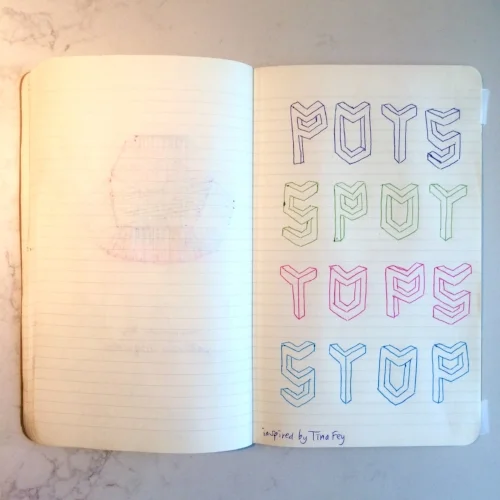 POTS
SPOT
TOPS
STOP
inspired by Tina Fey